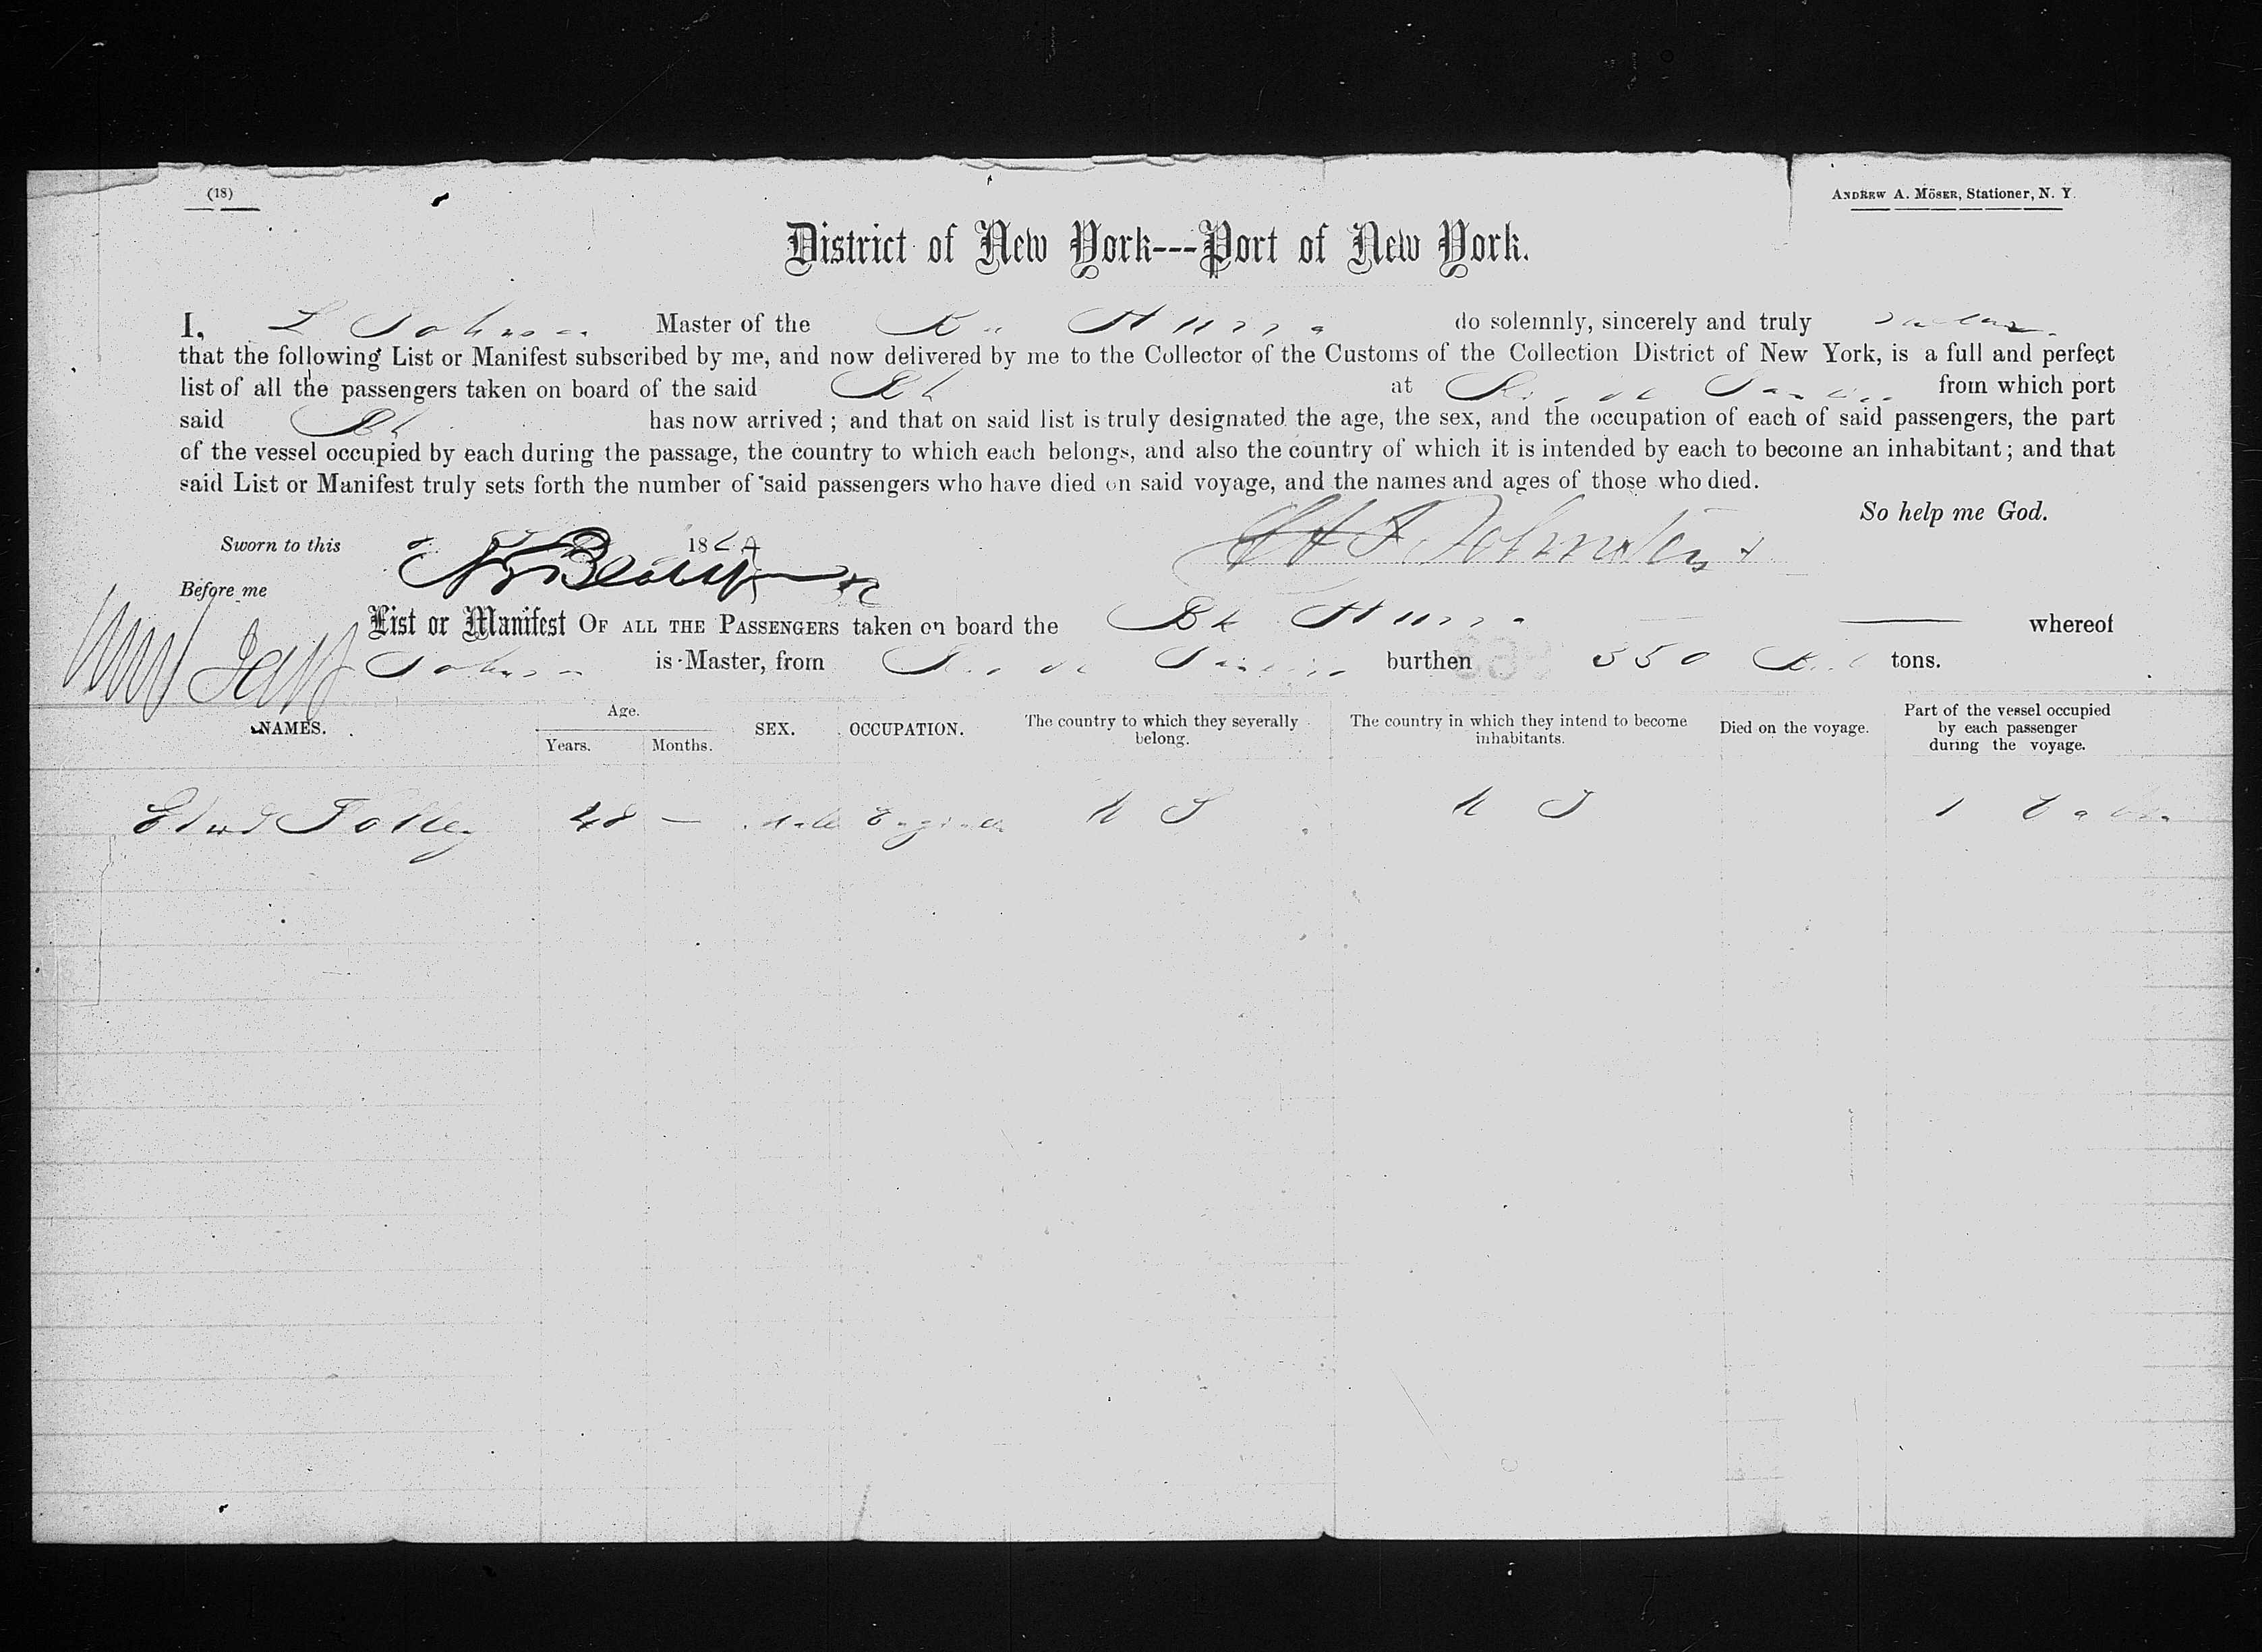 (18)
ANDREW A. MÖSER, Stationer, N. Y.
District of New York---Port of New York.
I, Master of the do solemnly, sincerely and truly
that the following List or Manifest subscribed by me, and now delivered by me to the Collector of the Customs of the Collection District of New York, is a full and perfect
list of all the passengers taken on board of the said Bk at from which port
said Bk has now arrived; and that on said list is truly designated the age, the sex, and the occupation of each of said passengers, the part
of the vessel occupied by each during the passage, the country to which each belongs, and also the country of which it is intended by each to become an inhabitant; and that
said List or Manifest truly sets forth the number of said passengers who have died on said voyage, and the names and ages of those who died.
So help me God.
Sworn to this 186
Before me
List or Manifest OF ALL THE PASSENGERS taken on board the Bk whereof
is Master, from burthen 550 tons.
NAMES. Age. Years. Months. SEX. OCCUPATION. The country to which they severally belong. The country in which they intend to become inhabitants. Died on the voyage. Part of the vessel occupied by each passenger during the voyage.
Edwd 48 — Male Engineer U S U S 1 Cabin